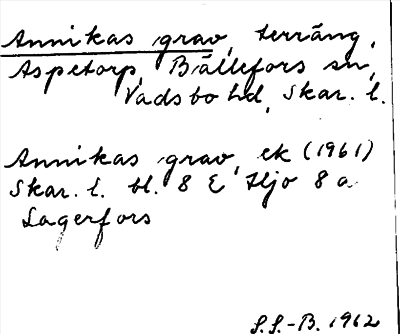 Annikas grav, terräng,
Aspetorp, Bällefors sn,
Vadsbo hd, Skar. l.
Annikas grav, ek (1961)
Skar. l. bl. 8 E Hjo 8 a
Lagerfors
S.S.-B. 1962